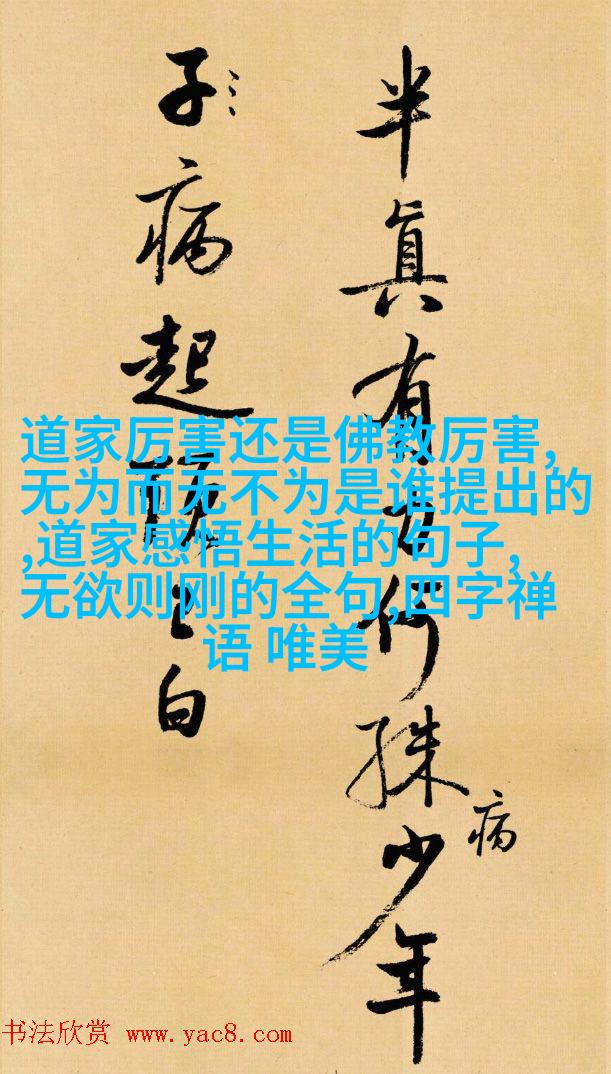 半真有何殊少年
病
子病起白
道家厉害还是佛教厉害,
无为而无不为是谁提出的
,道家感悟生活的句子,
无欲则刚的全句,四字禅
语 唯美
书法欣赏 www.yac8.com